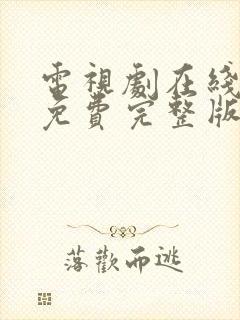 電視劇在綫
免費完整版
落歡而逃